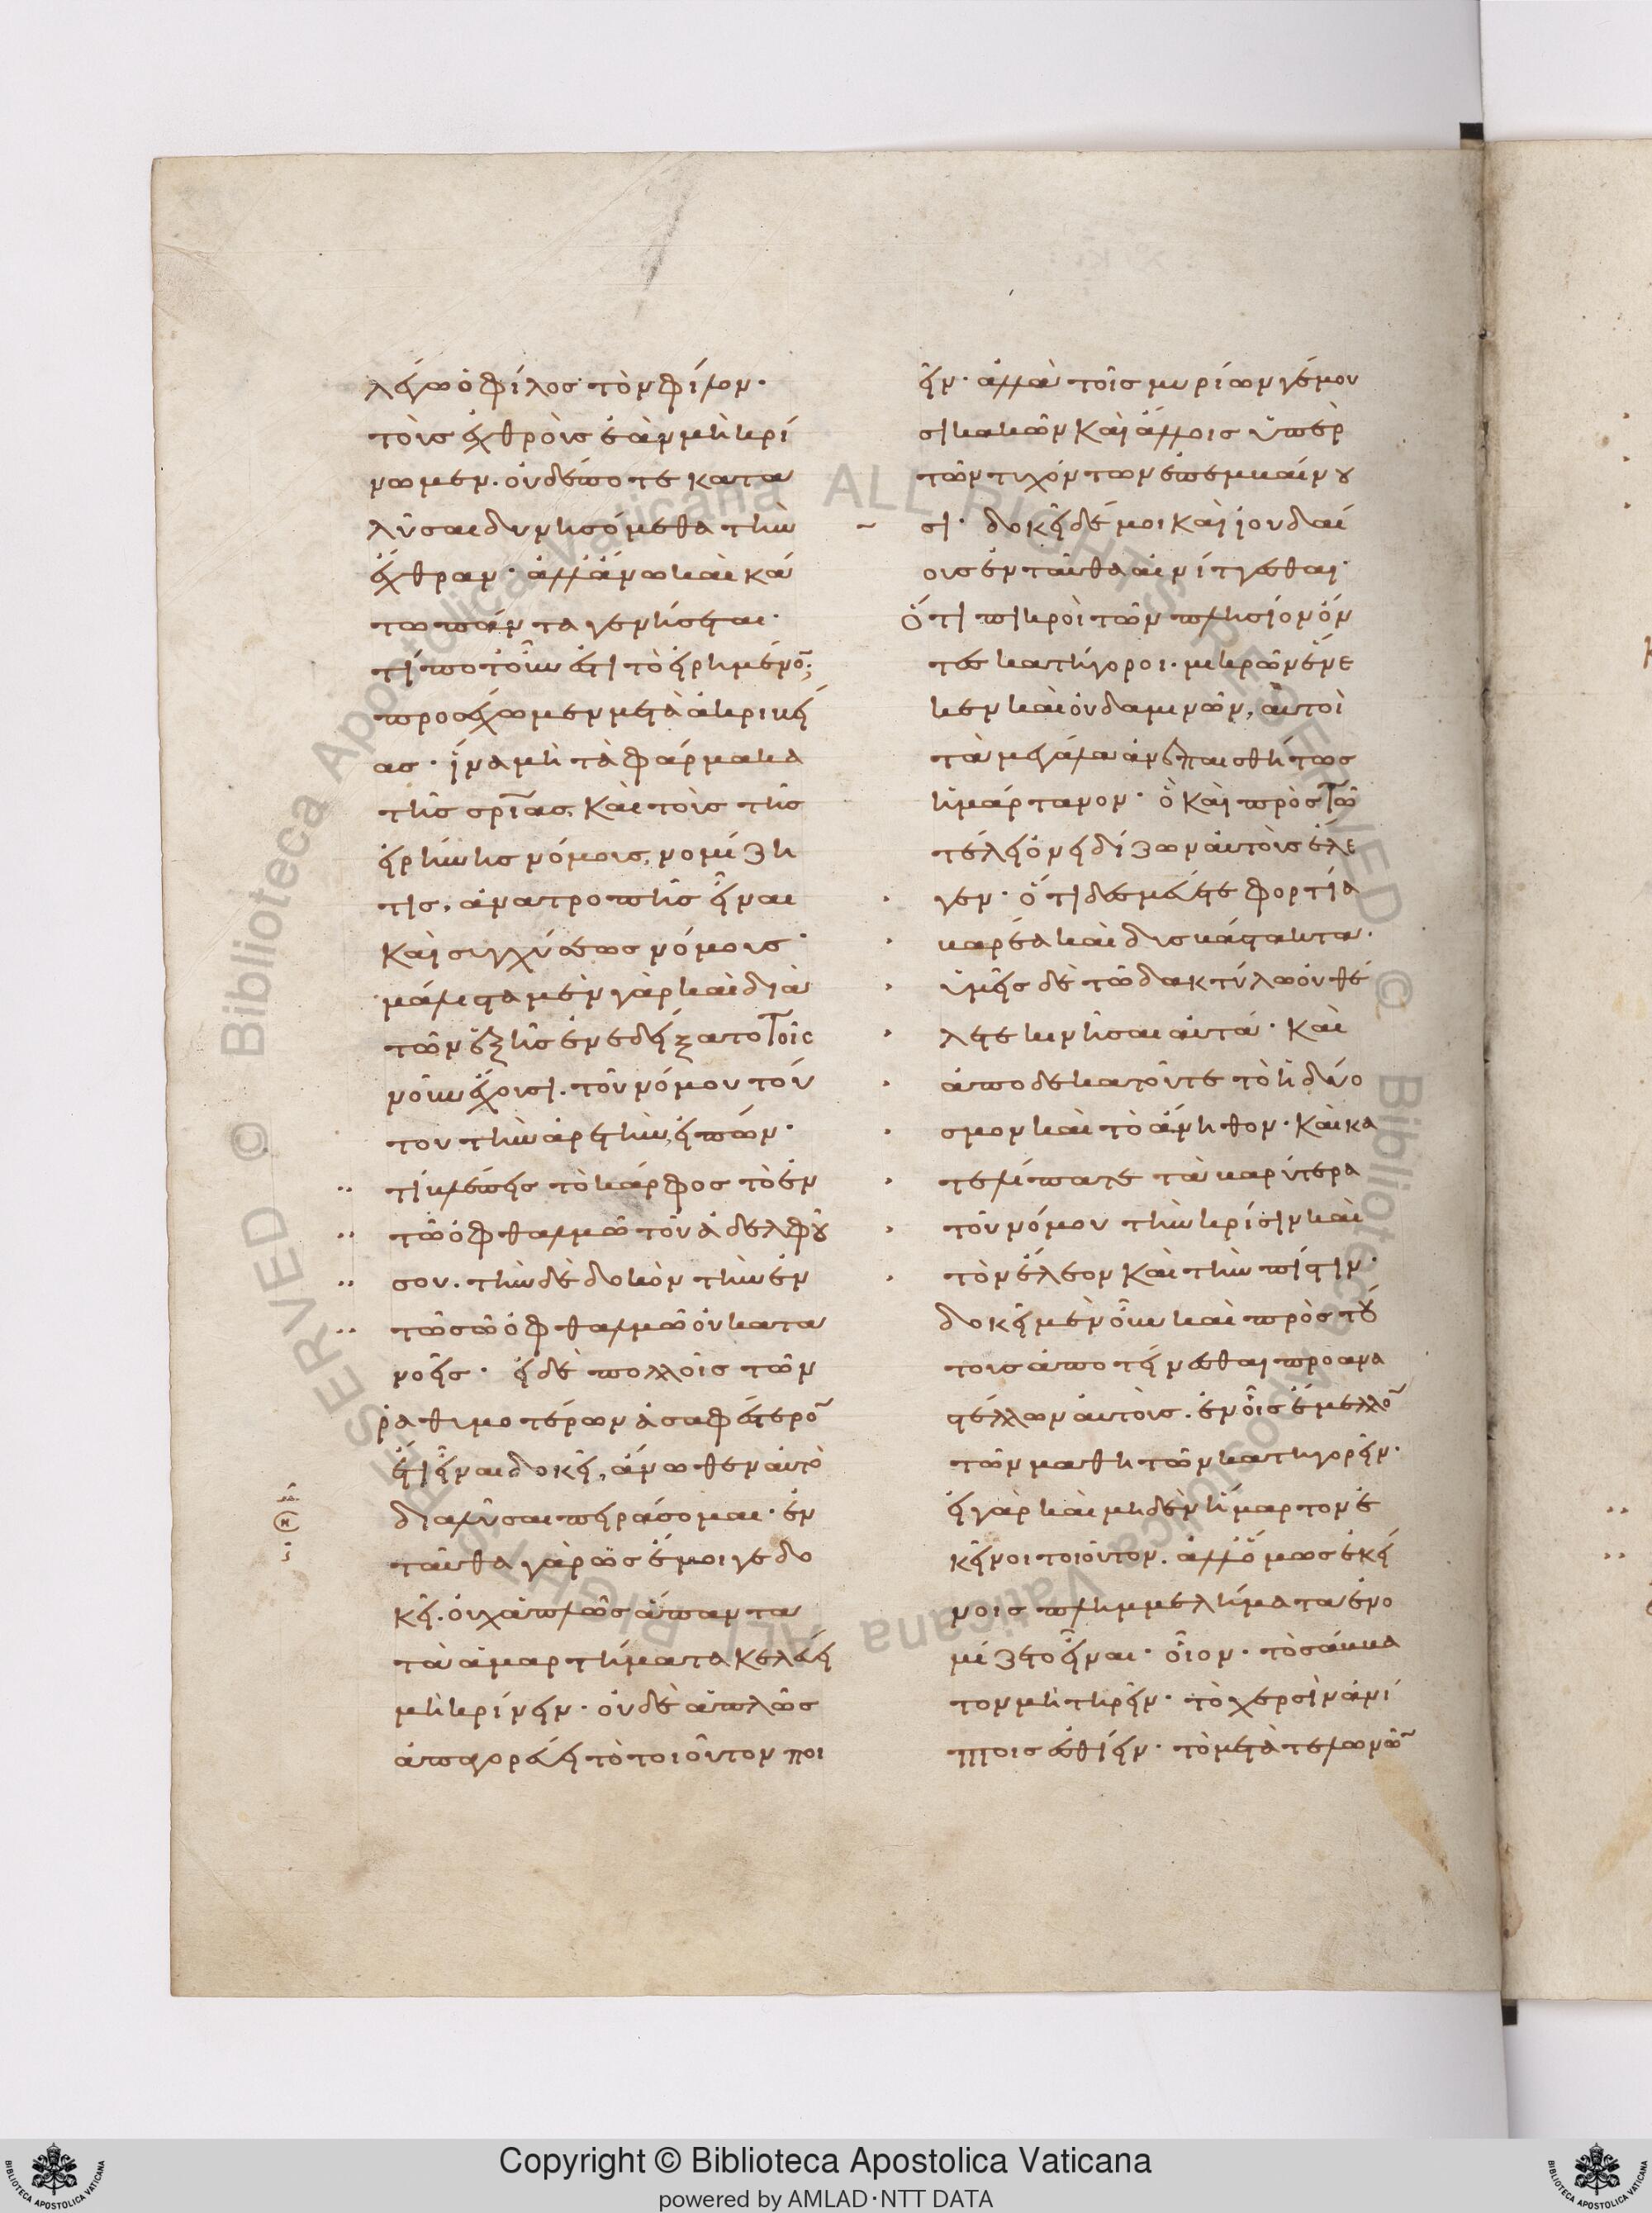 λέγω ὁ φίλος τὸν φίλον·
τοὺς ἐχθροὺς ἐὰν μὴ κρί
νωμεν· οὐδέποτε κατα
λῦσαι δυνησόμεθα τὴν
ἔχθραν· ἀλλ' ἄνω καὶ κά
τω πάντα γενήσεται·
τί ποτ' οὖν ἐστι τὸ εἰρημένο̅;
προσέχωμεν μετὰ ἀκριβεί
ας· ἵνα μὴ τὰ φάρμακα
τῆς σρίας, καὶ τοὺς τῆς
εἰρήνης νόμους, νομίζῃ
τις, ἀνατροπῆς εἶναι
καὶ συγχύσεως νόμους·
μάλιστα μὲν γὰρ καὶ διὰ
τῶν ἑξῆς ἐνεδείξατο τοῖς
νοῦν ἔχουσι· τοῦ νόμου τού
του τὴν ἀρετὴν, εἰπών·
τί βλέπεις τὸ κάρφος τὸ ἐν
τῶ ὀφθαλμῶ τοῦ ἀδελφοῦ
σου· τὴν δὲ δοκὸν τὴν ἐν
τῶ σῶ ὀφθαλμῶ οὐ κατα
νοεῖς· εἰ δὲ πολλοῖς τῶν
ῥαθυμοτέρων ἀσαφέστερο̅
ἔτι εἶναι δοκεῖ, ἄνωθεν αὐτὸ
διαλῦσαι πειράσομαι· ἐν
ταῦθα γὰρ ὡς ἔμοιγε δο
κεῖ· οὐχ ἁπλῶς ἅπαντα
τὰ ἁμαρτήματα κελεύει
μὴ κρίνειν· οὐδὲ ἁπλῶς
ἀπαγορεύει τὸ τοιοῦτον ποι
εῖν· ἀλλὰ τοῖς μυρίων γέμου
σι κακῶν καὶ ἄλλοις ὑπὲρ
τῶν τυχόντων ἐπεμβαίνου
σι· δοκεῖ δέ μοι καὶ ἰουδαί
ους ἐνταῦθα αἰνίττεσθαι·
ὅτι πικροὶ τῶν πλησίον ὄν
τες κατήγοροι· μικρῶν ἕνε
κεν καὶ οὐδαμινῶν, αὐτοὶ
τὰ μεγάλα ἀνεπαισθήτως
ἡμάρτανον· ὃ καὶ πρὸς τῶ
τέλει ὀνειδίζων αὐτοὺς ἔλε
γεν· ὅτι δεσμεύετε φορτία
βαρέα καὶ δυσβάστακτα·
ὑμεῖς δὲ τῶ δακτύλω οὐ θέ
λετε κινῆσαι αὐτά· καὶ
ἀποδεκατοῦτε τὸ ἡδύο
σμον καὶ τὸ ἄνηθον· καὶ κα
τελίπατε τὰ βαρύτερα
τοῦ νόμου τὴν κρίσιν καὶ
τὸν ἔλεον καὶ τὴν πίστιν·
δοκεῖ μὲν οὖν καὶ πρὸς τού
τους ἀποτείνεσθαι προανα
στέλλων αὐτοὺς· ἐν οἷς ἔμελλο̅
τῶν μαθητῶν κατηγορεῖν·
εἰ γὰρ καὶ μηδὲν ἥμαρτον ἐ
κεῖνοι τοιοῦτον· ἀλλ' ὅμως ἐκεί
νοις πλημμελήματα ἐνο
μίζετο εἶναι· οἷον· τὸ σάββα
τον μὴ τηρεῖν· τὸ χερσὶν ἀνί
πτοις ἐσθίειν· τὸ μετὰ τελωνῶ̅